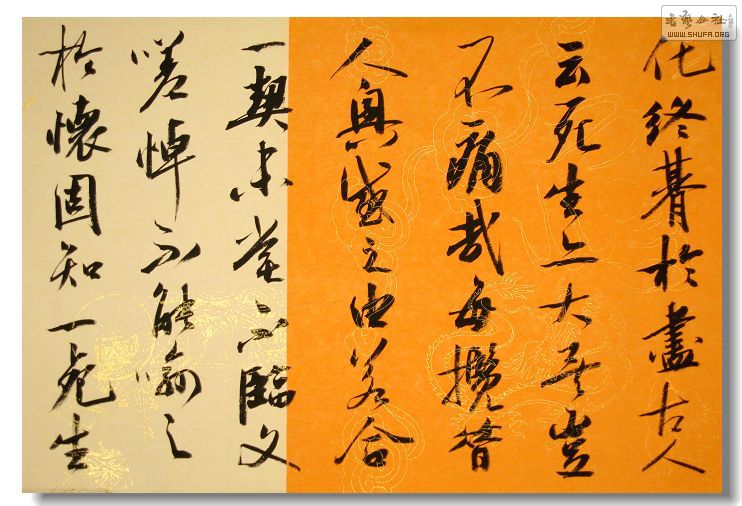 化終朞於盡古人
云死生亦大矣豈
不痛哉每攬昔
人興感之由若合
一契未嘗不臨文
嗟悼不能喻之
於懷固知一死生
书艺公社
WWW.SHUFA.ORG